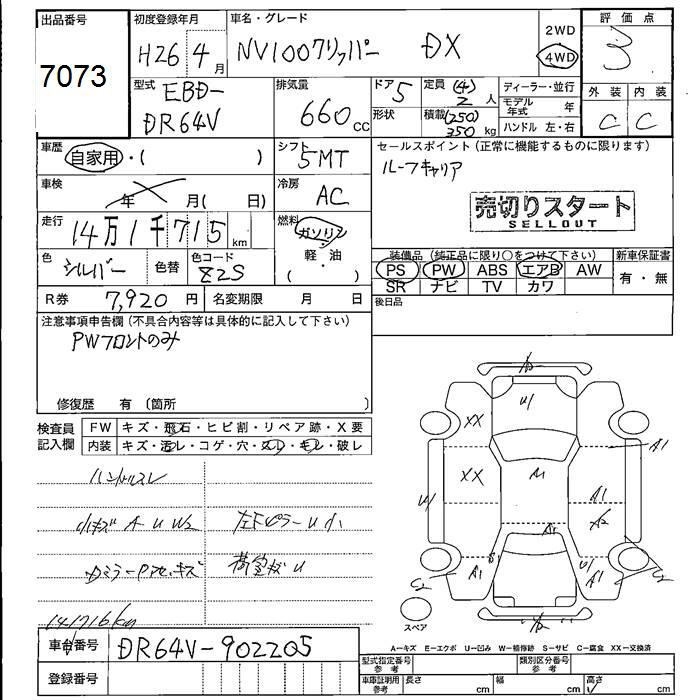 出品番号
7073
初度登録年月
H26 4月
車名・グレード
NV100クリッパー DX
2WD
4WD
評価点
3
外装 内装
C C
型式
EBD-
DR64V
排気量
660 cc
ドア 5
形状
定員 (4)
2 人
積載 (250)
350 kg
ディーラー・並行
モデル年式 年
ハンドル 左・右
車歴
自家用・( )
シフト
5MT
セールスポイント(正常に機能するものに限ります)
ルーフキャリア
車検
年 月( 日)
冷房
AC
売切りスタート
SELLOUT
走行
14万1千715km
燃料
ガソリン
軽・油
( )
色
シルバー
色替
色コード
Z2S
装備品(純正品に限り○をつけて下さい)
PS PW ABS エアB AW
SR ナビ TV カワ
新車保証書
有・無
R券 7,920円
名変期限 月 日
後日品
注意事項申告欄(不具合内容等は具体的に記入して下さい)
PWフロントのみ
修復歴 有〔箇所 〕
検査員記入欄
FW キズ・飛石・ヒビ割・リペア跡・X要
内装 キズ・汚レ・コゲ・穴・スレ・キレ・破レ
ハンドルスレ
小キズ A U W2
左Fピラー U 小
荷室板 U
141716km
車台番号 DR64V-902205
登録番号
U
XX
XX
A1
A1
A1
A2
U
A1
A1
C2
C2
スペア
A-キズ E-エクボ U-凹み W-補修跡 S-サビ C-腐食 XX-交換済
型式指定番号 参考
類別区分番号 参考
車庫証明用 参考
長さ cm
幅 cm
高さ cm